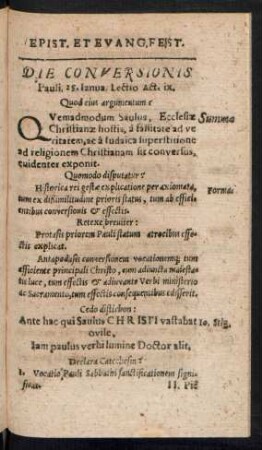 EPIST. ET EVANG. FEST.
DIE CONVERSIONIS
Pauli. 25. Ianua. Lectio Act. ix.
Quod eius argumentum?
QVemadmodum Saulus, Ecclesiæ
Summa
Christianæ hostis, à falsitate ad ve
ritatem, ac à Iudaica superstitione
ad religionem Christianam sit conversus,
evidenter exponit.
Quomodo disputatur?
Historica rei gestæ explicatione per axiomata,
Forma.
tum ex dissimilitudine prioris status, tum ab effici-
entibus conversionis & effectis.
Retexe breviter:
Protasis priorem Pauli statum atrocibus effe-
ctis explicat.
Antapodosis conversionem vocationemq; tum
efficiente principali Christo, tum adiuncta maiesta-
tis luce, tum effectis & adiuvante Verbi ministerio
ac Sacramento, tum effectis consequentibus edisserit.
Cedo distichon:
Ante hac qui Saulus CHRISTI vastabat
ovile,
Iam paulus verbi lumine Doctor alit,
Declara Catechesin?
1. Vocatio Pauli Sabbathi sanctificationem signi-
ficat.
II. Pie